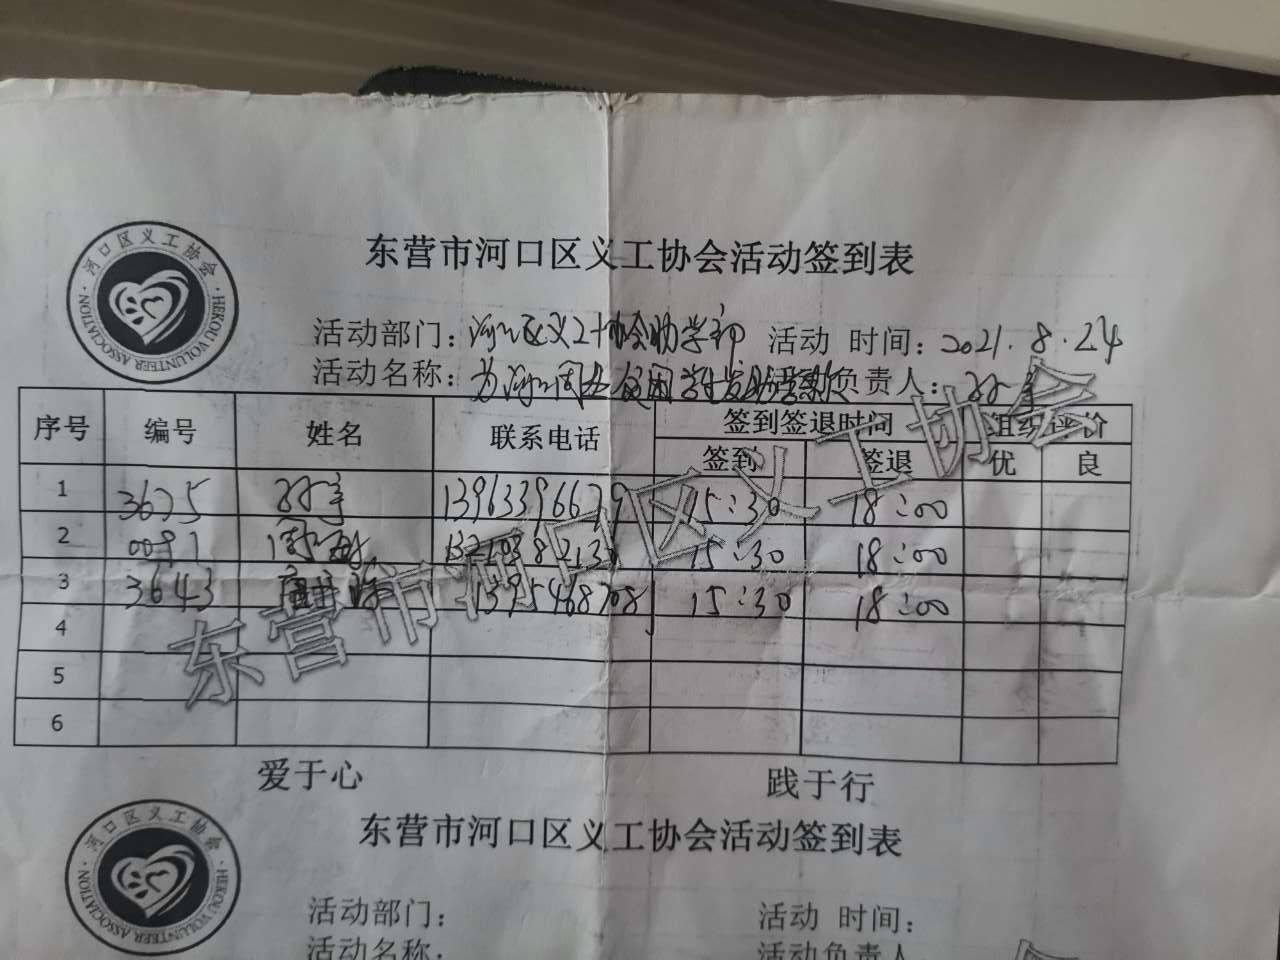 东营市河口区义工协会活动签到表
河口区义工协会
HEKOU VOLUNTEER ASSOCIATION
活动部门：河口区义工协会助学部 活动 时间：2021.8.24
活动名称： 活动负责人：
序号 编号 姓名 联系电话 签到签退时间 组织评价
签到 签退 优 良
1 3675 13963396679 15:30 18:00
2 0091 15:30 18:00
3 3643 15:30 18:00
4
5
6
东营市河口区义工协会
爱于心 践于行
东营市河口区义工协会活动签到表
河口区义工协会
HEKOU VOLUNTEER ASSOCIATION
活动部门： 活动 时间：
活动名称： 活动负责人